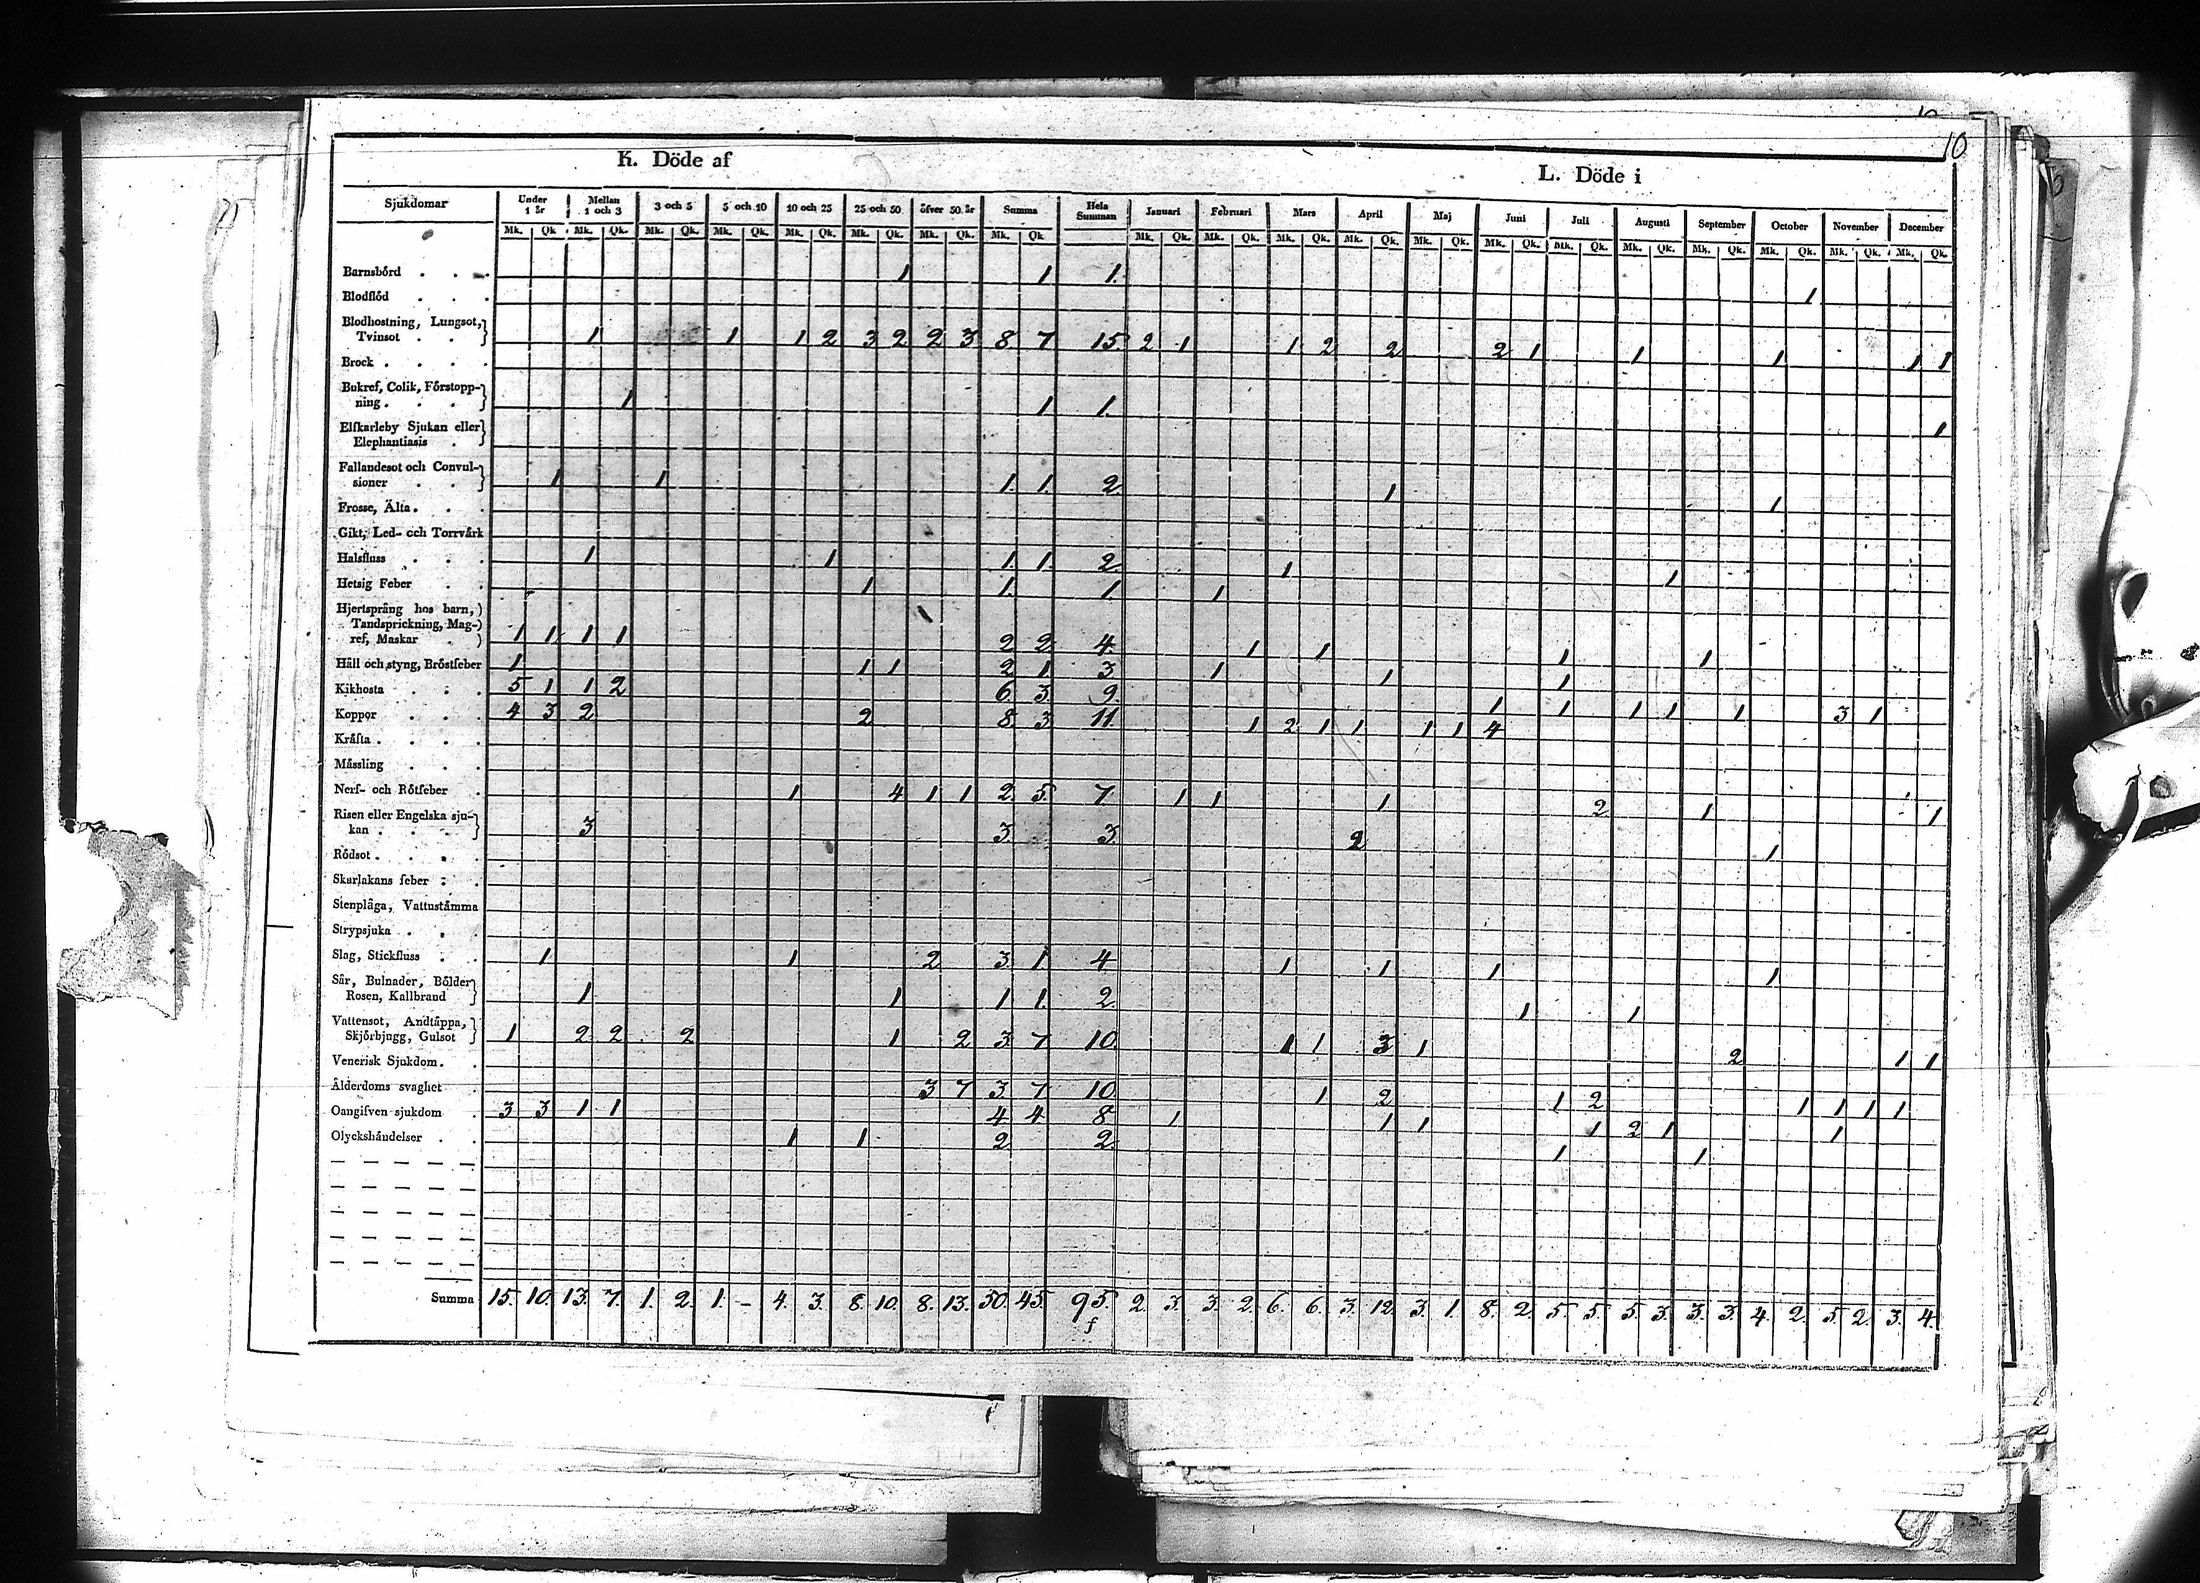 10
K. Döde af L. Döde i
Sjukdomar Under 1 år Mellan 1 och 3 3 och 5 5 och 10 10 och 25 25 och 50 öfver 50 år Summa Hela Summan Januari Februari Mars April Maj Juni Juli Augusti September October November December
Mk. Qk Mk. Qk. Mk. Qk. Mk. Qk. Mk. Qk. Mk. Qk. Mk. Qk. Mk. Qk Mk. Qk. Mk. Qk. Mk. Qk. Mk. Qk. Mk. Qk. Mk. Qk. Mk. Qk. Mk. Qk. Mk. Qk. Mk. Qk. Mk. Qk. Mk. Qk.
Barnsbörd . . . 1 1 1. 1
Blodflöd . . .
Blodhostning, Lungsot,
Tvinsot . . 1 1 1 2 3 2 2 3 8 7 15. 2 1 1 2 2 2 1 1 1 1 1
Brock . . . .
Bukref, Colik, Förstopp-
ning . . . 1 1 1. 1
Elfkarleby Sjukan eller
Elephantiasis .
Fallandesot och Convul-
sioner . . 1 1 1. 1. 2 1 1
Frosse, Älta . . .
Gikt, Led- och Torrvärk
Halsfluss . . . 1 1 1. 1. 2. 1 1
Hetsig Feber . . 1 1. 1. 1
Hjertsprång hos barn,
Tandsprickning, Mag-
ref, Maskar . 1 1 1 1 2 2 4. 1 1 1 1
Håll och styng, Bröstfeber 1 1 1 2 1 3 1 1 1
Kikhosta . . . 5 1 1 2 6 3. 9 1 1 1 1 1 3 1
Koppor . . . 4 3 2 2 8 3 11. 1 2 1 1 1 1 4
Kräfta . . . .
Mässling . . .
Nerf- och Rötfeber . 1 4 1 1 2 5. 7 1 1 1 2 1 1
Risen eller Engelska sju-
kan . . . 3 3. 3. 2 1
Rödsot . . . .
Skarlakans feber . .
Stenplåga, Vattustämma
Strypsjuka . . .
Slag, Stickfluss . . 1 1 2 3 1. 4 1 1 1 1
Sår, Bulnader, Bölder
Rosen, Kallbrand 1 1 1 1. 2. 1 1
Vattensot, Andtäppa,
Skjörbjugg, Gulsot 1 2 2 2 1 2 3 7 10. 1 1 3 1 2 1 1
Venerisk Sjukdom . .
Ålderdoms svaghet . 3 7 3. 7 10. 1 2 1 2 1 1 1 1
Oangifven sjukdom . 3 3 1 1 4 4 8. 1 1 1 1 2 1 1
Olyckshändelser . . 1 1 2 2. 1 1
Summa 15. 10. 13. 7. 1. 2. 1. – 4. 3. 8. 10. 8. 13. 50. 45. 95. 2. 3. 3. 2. 6. 6. 3. 12. 3. 1. 8. 2. 5. 5. 5. 3. 3. 3. 4. 2. 5. 2. 3. 4.